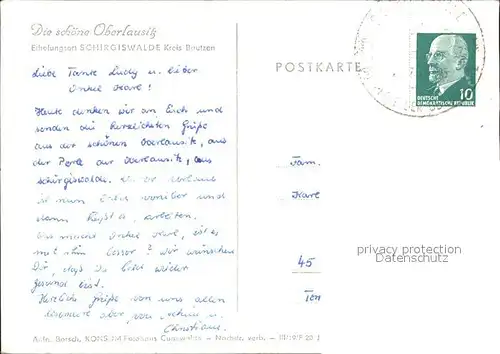 Die schöne Oberlausitz
Erholungsort SCHIRGISWALDE Kreis Bautzen
Liebe Tante Ludy u. lieber
Onkel Karl!
Heute denken wir an Euch und
senden die herzlichsten Grüße
aus der schönen Oberlausitz, aus
der Perle der Oberlausitz, aus
Schirgiswalde. Urlaub
ist nun vorüber und
dann heißt es, arbeiten.
Was macht Onkel Karl, ist es
mit ihm besser? Wir wünschen
Dir, daß Du bald wieder
gesund bist.
Herzliche Grüße von uns allen
besonders aber von
Christiane.
POSTKARTE
DEUTSCHE
DEMOKRATISCHE REPUBLIK
10
Fam.
Karl
45
privacy protection
Datenschutz
Aufn. Borsch, KONSUM Fotohaus Cunewalde - Nachdr. verb. -